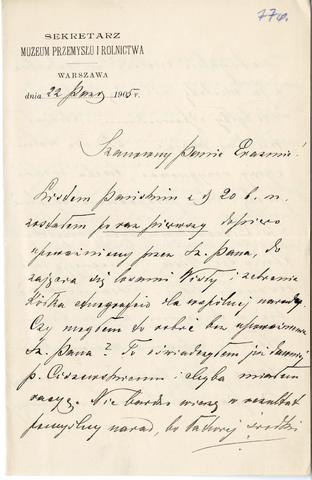 77a.
SEKRETARZ
MUZEUM PRZEMYSŁU I ROLNICTWA
WARSZAWA
dnia 22 Paź 1905 r.
Szanowny Panie Erazmie!
Listem Pańskim z d 20 b. m.
zostałem po raz pierwszy dopiero
upoważniony przez Sz. Pana, do
zajęcia się losami Wisły i zebrania
Kółka etnografów dla wspólnej narady.
Czy mogłem to robić bez upoważnienia
Sz. Pana? To oświadczyłem już dawniej
p. Ciszewskiemu i chyba miałem
racyę. Nie bardzo wierzę w rezultat
pomyślny narad, bo
środki